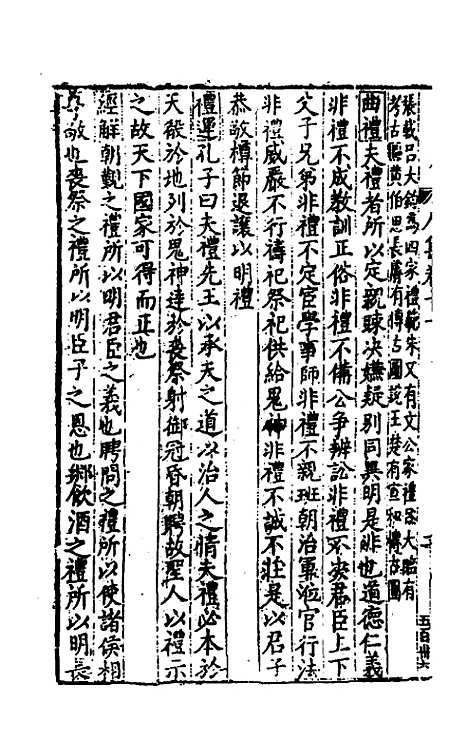 張載呂大鈞為四家禮範朱又有文公家禮呂大臨有
考古圖黃伯思長睿有博古圖說王楚有宣和博古圖
曲禮夫禮者所以定親踈决嫌疑别同異明是非也道德仁義
非禮不成教訓正俗非禮不備公争辨訟非禮不决君臣上下
父子兄弟非禮不定宦學事師非禮不親班朝治軍涖官行法
非禮威嚴不行禱祀祭祀供給鬼神非禮不誠不莊是以君子
恭敬樽節退讓以明禮
禮運孔子曰夫禮先王以承天之道以治人之情夫禮必本於
天殽於地列於鬼神達於喪祭射御冠昏朝聘故聖人以禮示
之故天下國家可得而正也
經解朝覲之禮所以明君臣之義也聘問之禮所以使諸侯相
尊敬也喪祭之禮所以明臣子之恩也鄉飲酒之禮所以明長